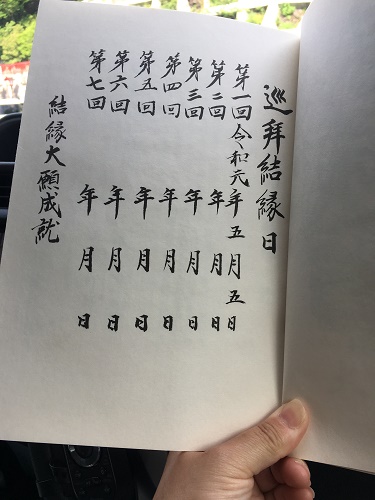 巡拜結縁日
第一回令和元年五月五日
第二回 年 月 日
第三回 年 月 日
第四回 年 月 日
第五回 年 月 日
第六回 年 月 日
第七回 年 月 日
結縁大願成就